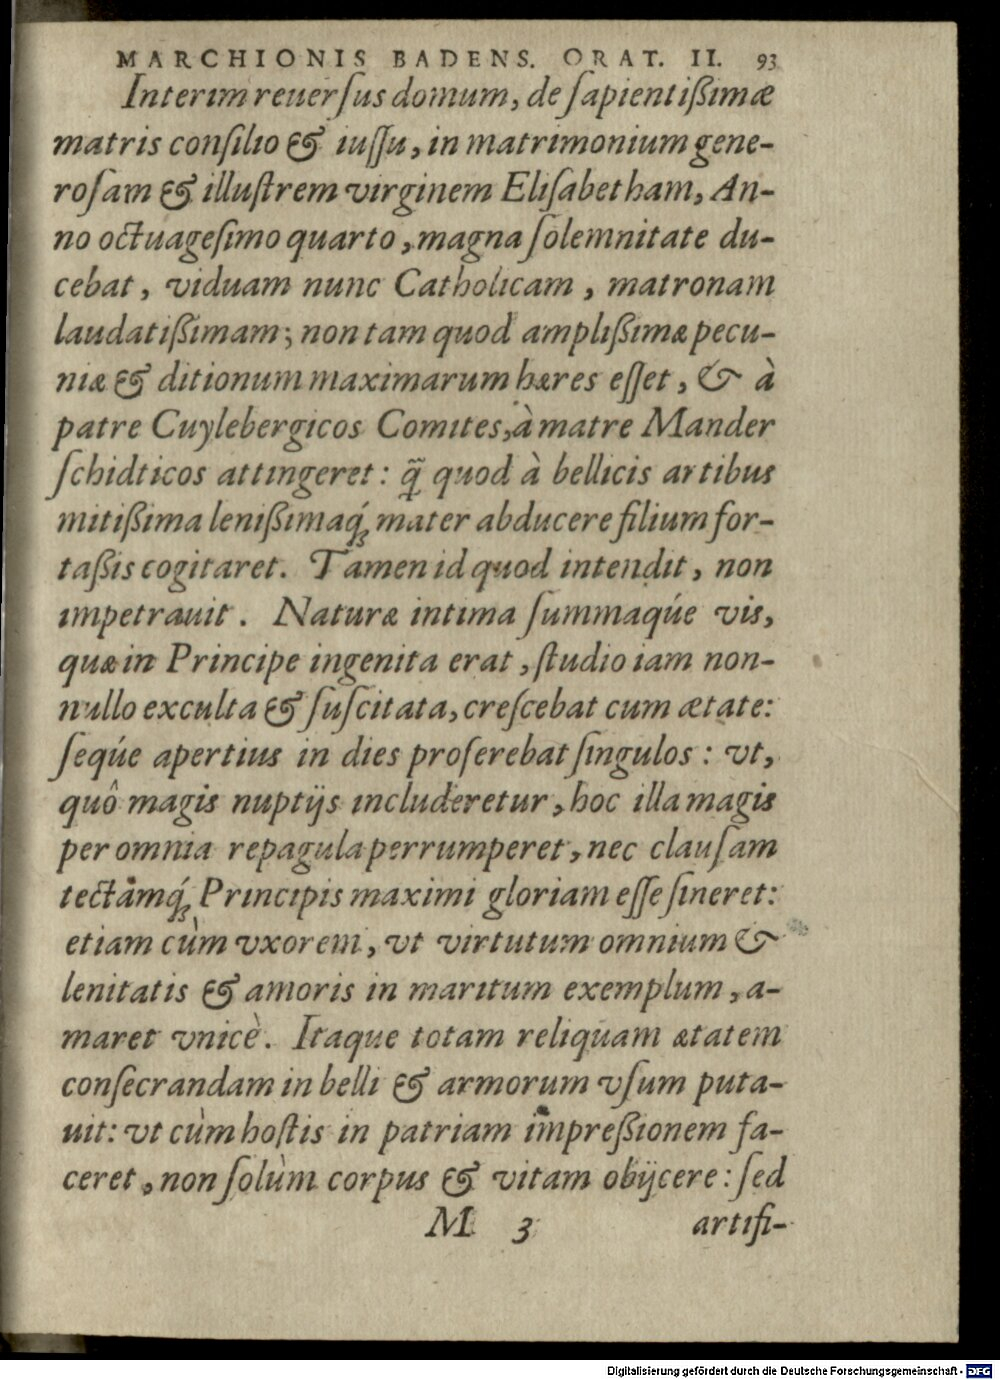 MARCHIONIS BADENS. ORAT. II. 93
Interim reuersus domum, de sapientißimæ
matris consilio & iussu, in matrimonium gene-
rosam & illustrem virginem Elisabetham, An-
no octuagesimo quarto, magna solemnitate du-
cebat, viduam nunc Catholicam, matronam
laudatißimam; non tam quod amplißimæ pecu-
niæ & ditionum maximarum hæres esset, & à
patre Cuylebergicos Comites, à matre Mander
schidticos attingeret: q̃ quod à bellicis artibus
mitißima lenißimaq́; mater abducere filium for-
taßis cogitaret. Tamen id quod intendit, non
impetrauit. Naturæ intima summaqúe vis,
quæ in Principe ingenita erat, studio iam non-
nullo exculta & suscitata, crescebat cum ætate:
seqúe apertius in dies proferebat singulos: vt,
quô magis nuptijs includeretur, hoc illa magis
per omnia repagula perrumperet, nec clausam
tectamq́; Principis maximi gloriam esse sineret:
etiam cùm vxorem, vt virtutum omnium &
lenitatis & amoris in maritum exemplum, a-
maret vnicè. Itaque totam reliquam ætatem
consecrandam in belli & armorum vsum puta-
uit: vt cùm hostis in patriam impreßionem fa-
ceret, non solùm corpus & vitam obijcere: sed
M 3 artifi-
Digitalisierung gefördert durch die Deutsche Forschungsgemeinschaft - DFG